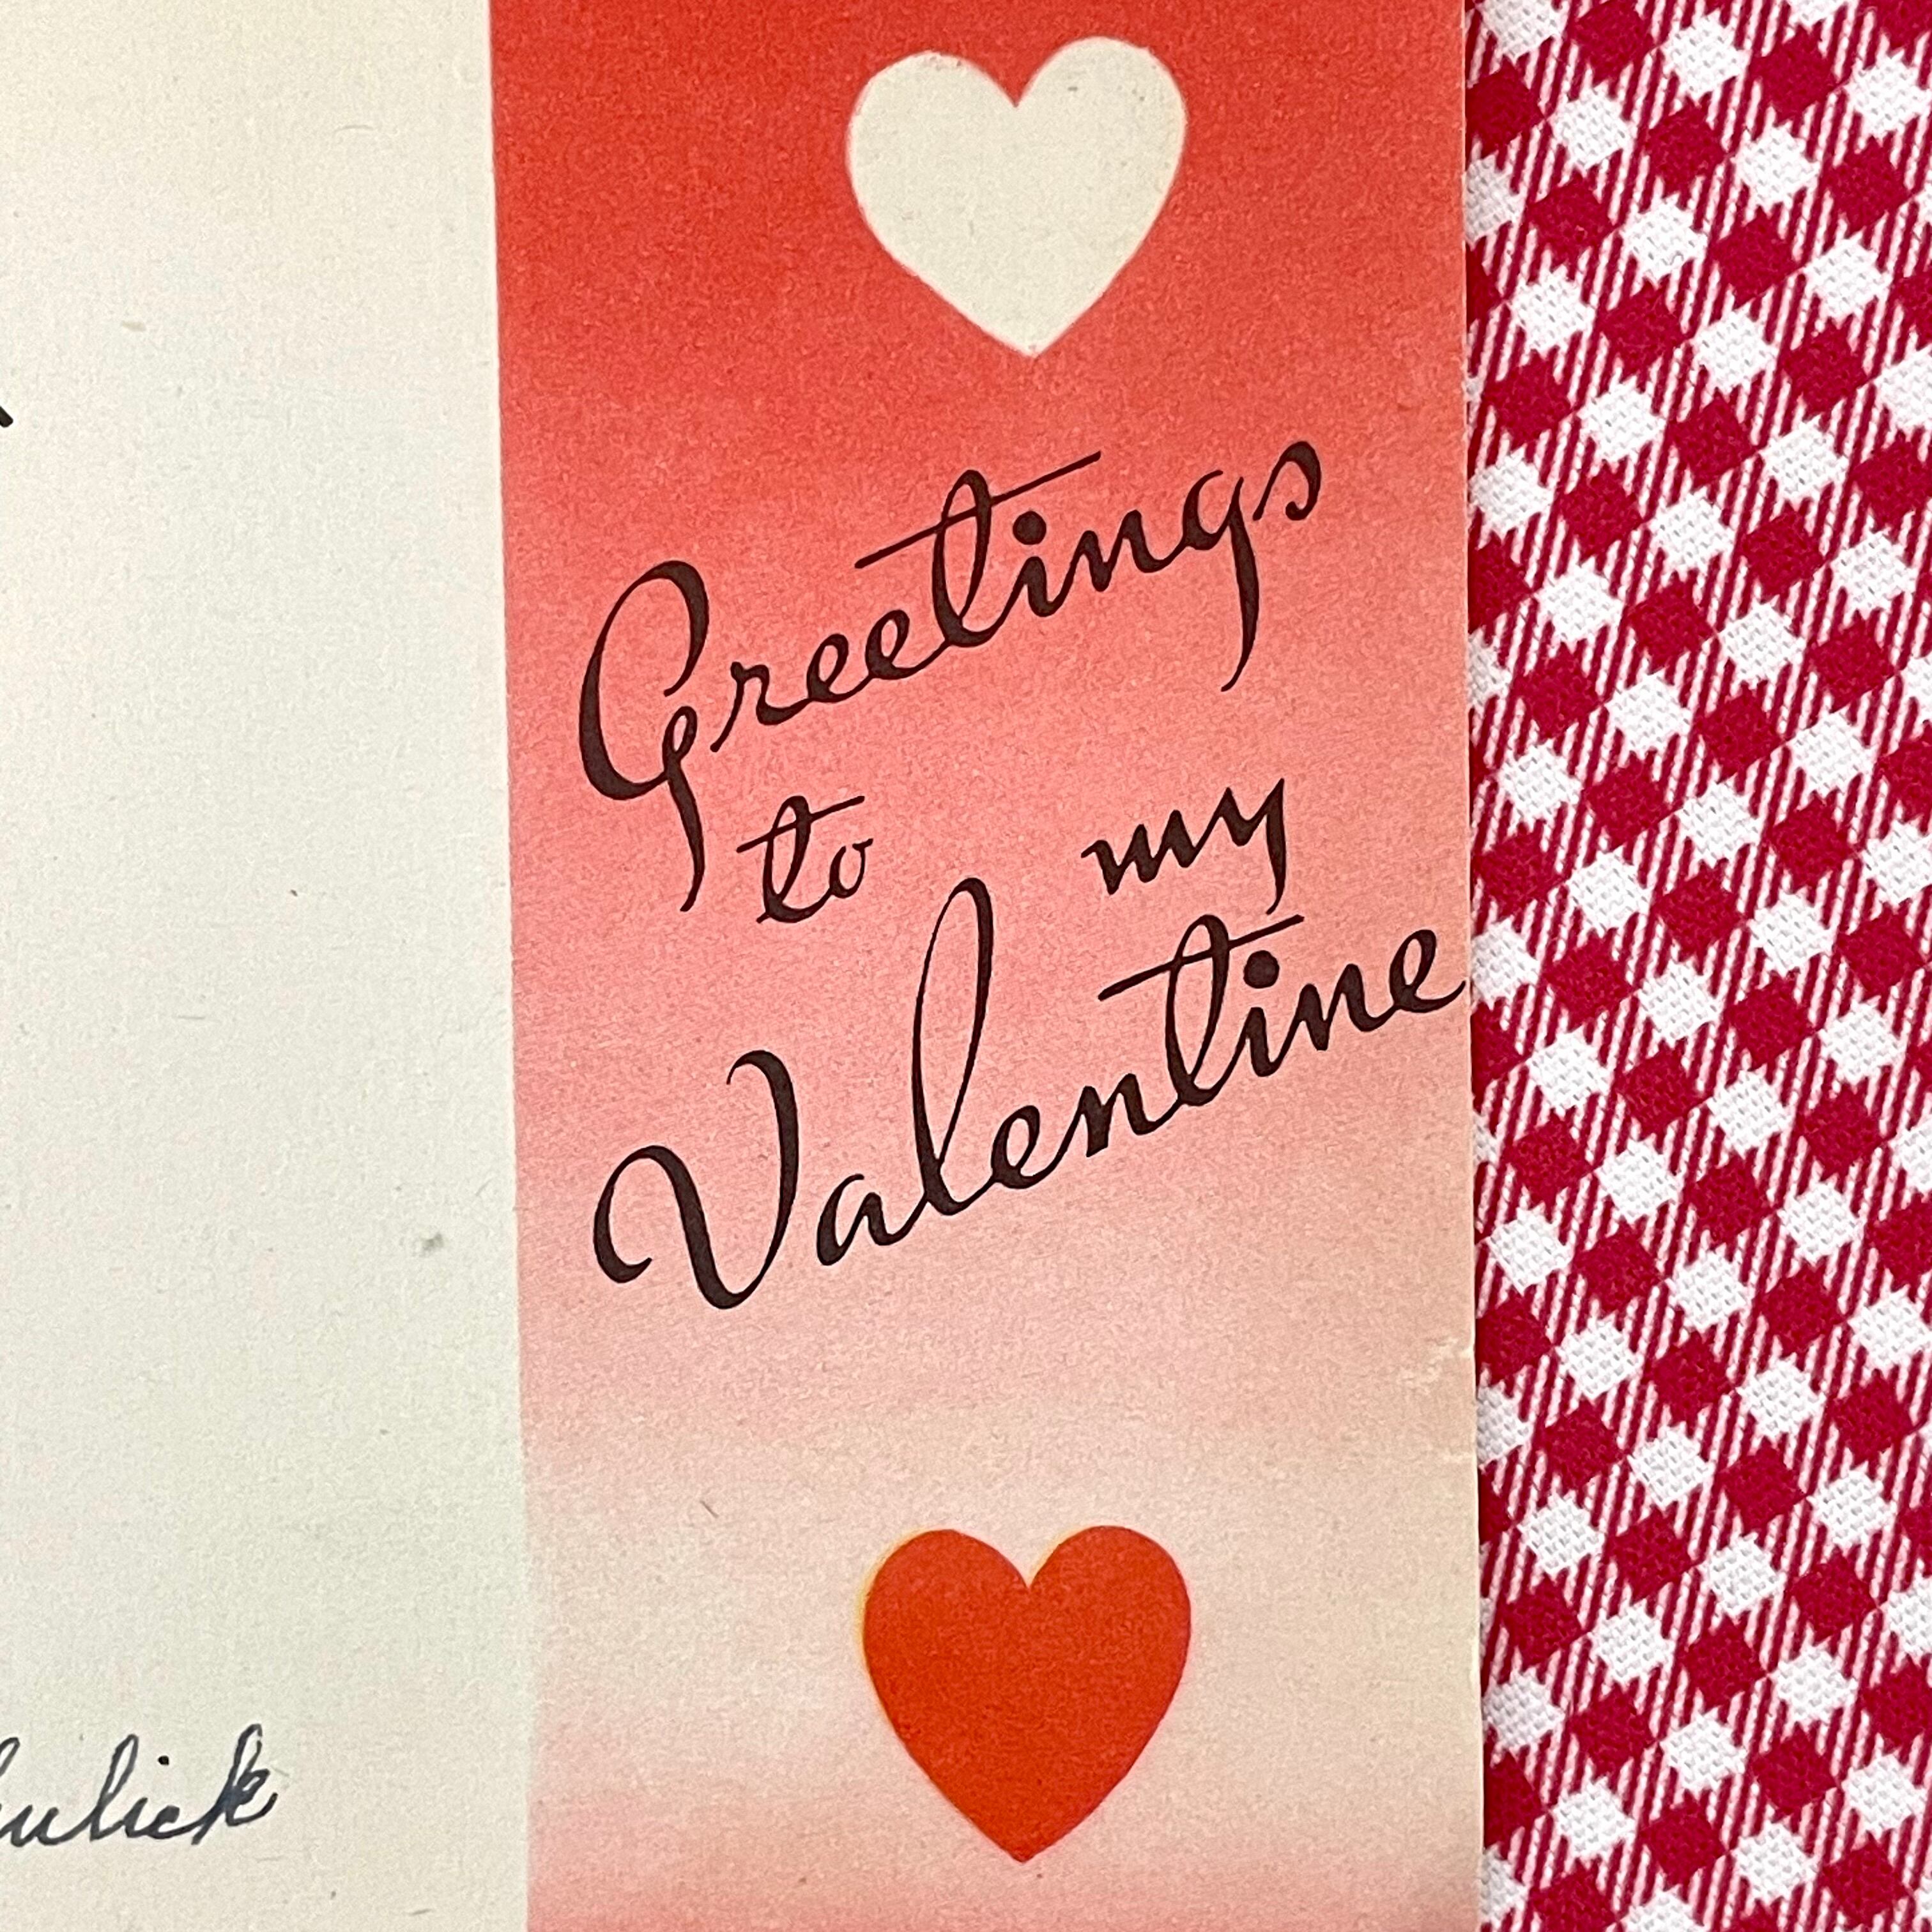 Greetings
to my
Valentine